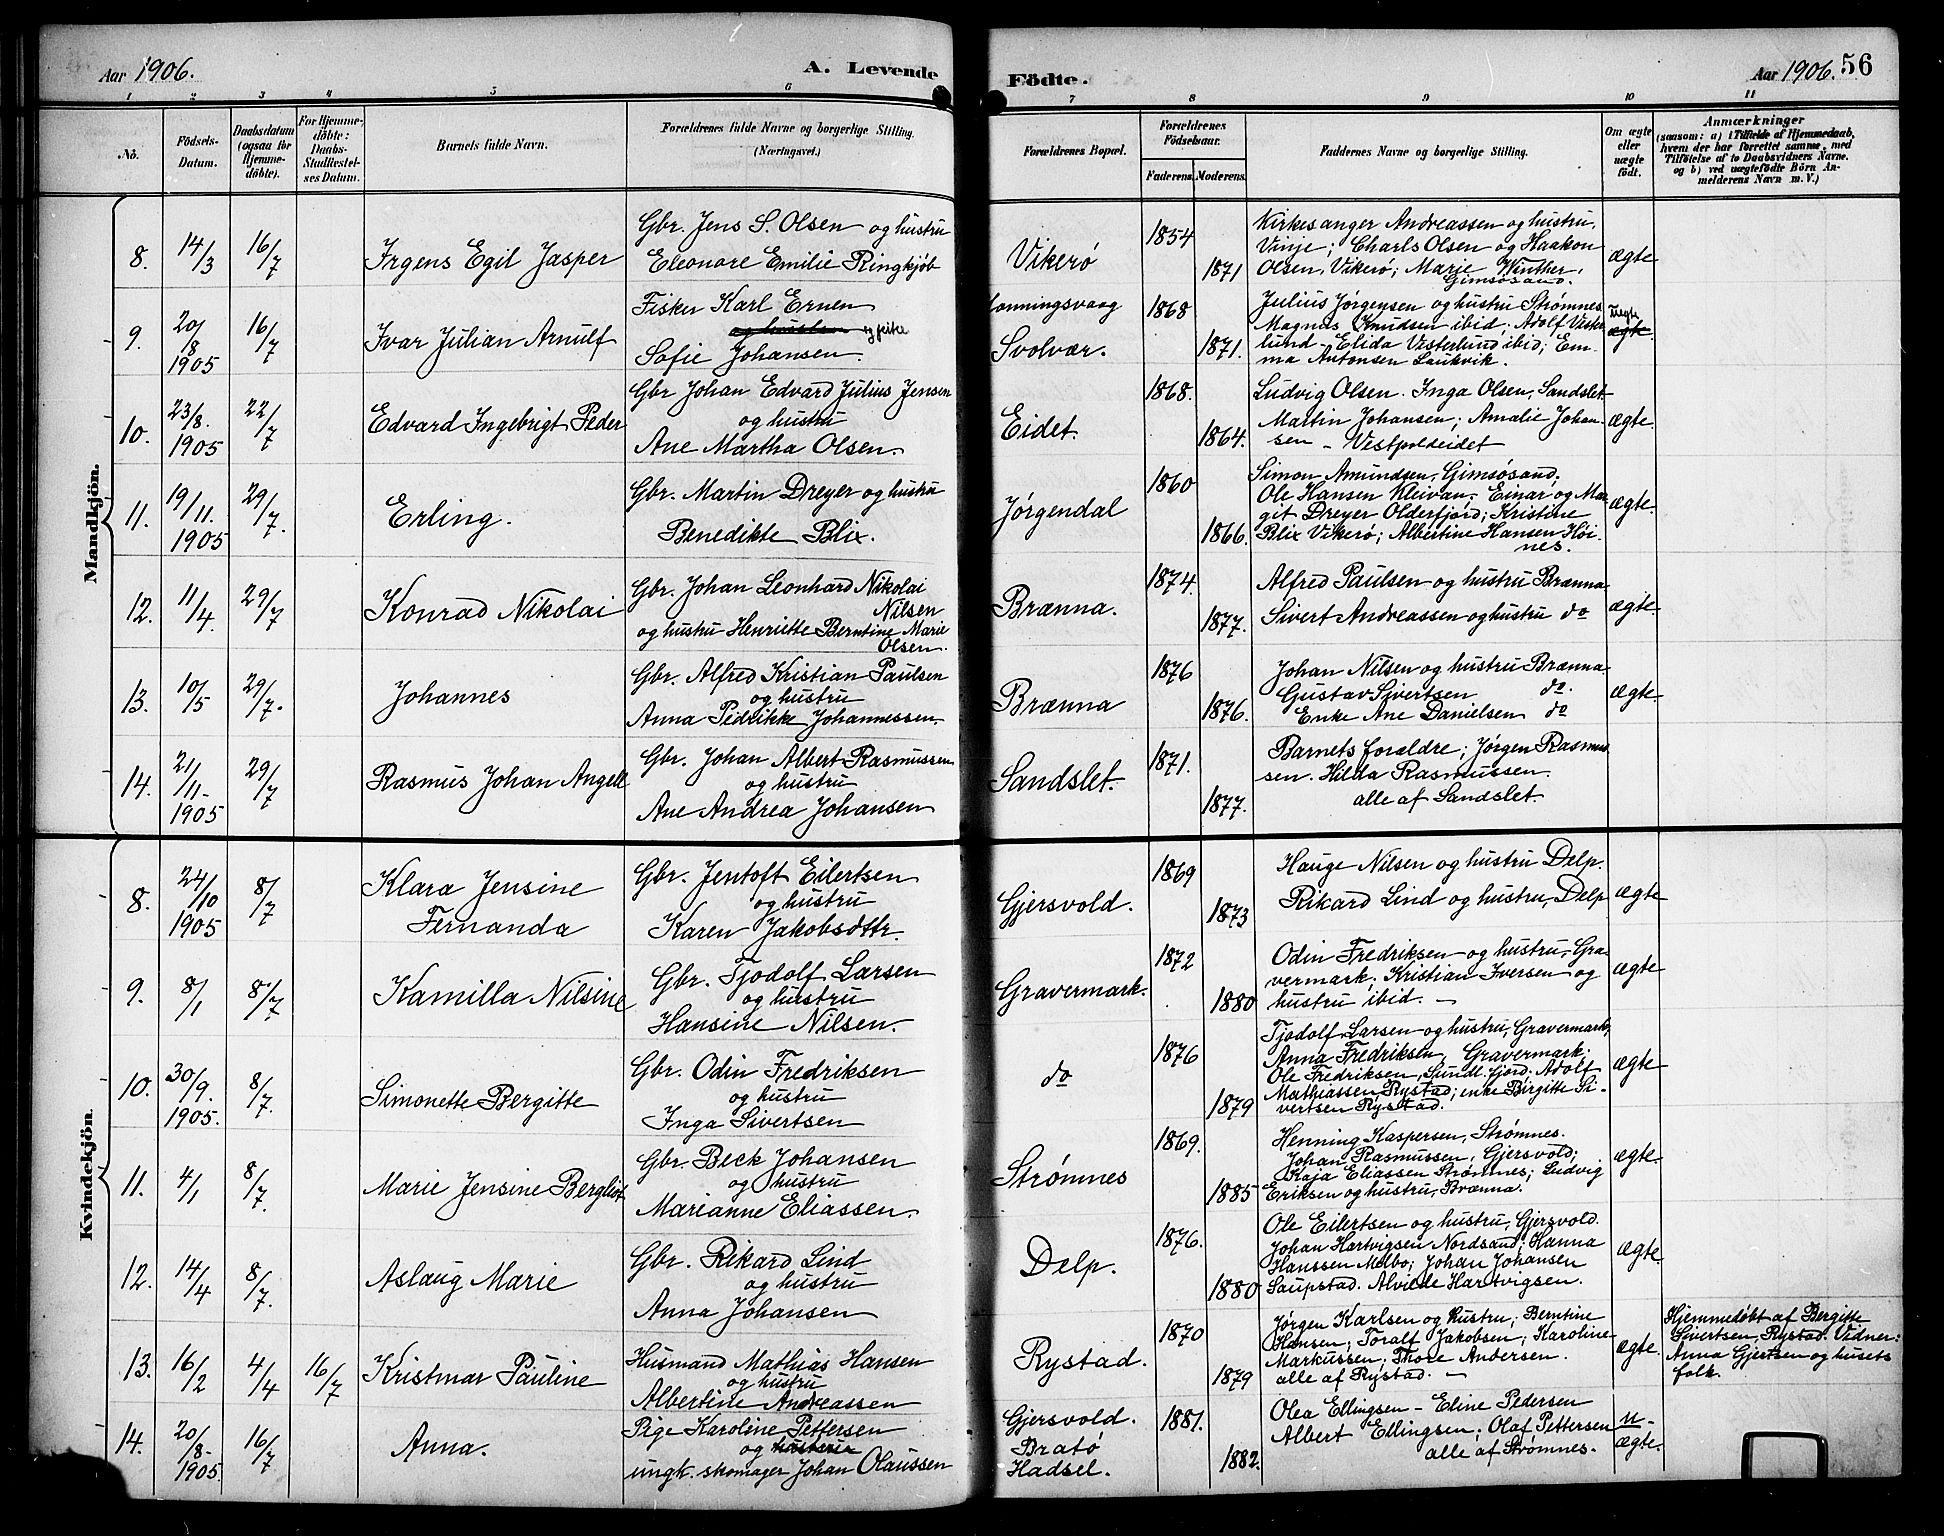 Aar 1906.
A. Levende
Födte.
Aar 1906. 56
1 2 3 4 5 6 7 8 9 10 11
No.
Födsels-
Datum.
Daabsdatum
(ogsaa for
Hjemme-
döbte).
For Hjemme-
döbte:
Daabs-
Stadfæstel-
ses Datum.
Barnets fulde Navn.
Forældrenes fulde Navne og borgerlige Stilling.
(Næringsvei.)
Forældrenes Bopæl.
Forældrenes
Födselsaar.
Faderens. Moderens.
Faddernes Navne og borgerlige Stilling.
Om ægte
eller
uægte
födt.
Anmærkninger
(saasom: a) i Tilfælde af Hjemmedaab,
hvem der har forrettet samme, med
Tilföielse af to Daabsvidners Navne.
og b) ved uægtefödte Börn An-
melderens Navn m. V.)
Mandkjön.
8. 14/3 16/7 Irgens Egil Jasper
Gbr. Jens S. Olsen og hustru
Eleonore Emilie Ringkjøb
Vikerø 1854 1871
Kirkesanger Andreassen og hustru,
Vinje; Charls Olsen og Haakon
Olsen, Vikerø; Marie Winther,
Gimsøsand.
ægte
9. 20/8 1905 16/7 Ivar Julian Arnulf
Fisker Karl Ernen
og hustru og pike
Sofie Johansen.
Honningsvaag
Svolvær. 1868 1871.
Julius Jørgensen og hustru Strømnes
Magnus Knudsen ibid; Adolf Vester
lund - Elida Vesterlund ibid; Em-
ma Antonsen Laukvik.
Uegte
ægte
10. 23/8. 1905 22/7 Edvard Ingebrigt Peder
Gbr Johan Edvard Julius Jensen
og hustru
Ane Martha Olsen.
Eidet. 1868. 1864.
Ludvig Olsen. Inga Olsen, Sandslet
Martin Johansen; Amalie Johan-
sen - Vestpoldeidet
ægte.
11. 19/11. 1905 29/7. Erling.
Gbr. Martin Dreyer og hustru
Benedikte Blix.
Jørgendal 1860 1866.
Simon Amundsen, Gimsøsand;
Ole Hansen Kleivan. Einar og Mar
git Dreyer Olderfjord; Kristine
Blix Vikerø; Albertine Hansen Höi-
nes.
ægte.
12. 11/4. 29/7 Konrad Nikolai
Gbr. Johan Leonhard Nikolai
Nilsen
og hustru Henriette Berntine Marie
Olsen.
Brænna. 1874. 1877.
Alfred Paulsen og hustru Brænna
Sivert Andreassen og hustru do
ægte.
13. 10/5 29/7. Johannes
Gbr. Alfred Kristian Paulsen
og hustru
Anna Pedrikke Johannessen.
Brænna 1876 1876.
Johan Nilsen og hustru Brænna
Gustav Sivertsen do.
Enke Ane Danielsen do
ægte.
14. 21/11- 1905 29/7 Rasmus Johan Angell
Gbr. Johan Albert Rasmussen
og hustru
Ane Andrea Johansen
Sandslet. 1871. 1877.
Barnets forældre; Jørgen Rasmus
sen. Hilda Rasmussen.
alle af Sandslet.
Kvindekjön.
8. 24/10 1905 8/7 Klara Jensine
Fernanda
Gbr. Jentoft Eilertsen
og hustru
Karen Jakobsdttr.
Gjersvold. 1869 1873
Hauge Nilsen og hustru Delp.
Rikard Lind og hustru, Delp
ægte
9. 8/1 8/7 Kamilla Nilsine
Gbr. Tjodolf Larsen
og hustru
Hansine Nilsen.
Gravermark. 1872 1880
Odin Fredriksen og hustru, Gra-
vermark; Kristian Iversen og
hustru ibid. -
ægte
10. 30/9. 1905. 8/7. Simonette Bergitte
Gbr. Odin Fredriksen
og hustru
Inga Sivertsen
do 1876 1879
Tjodolf Larsen og hustru, Gravermark;
Anna Fredriksen, Gravermark;
Ole Fredriksen, Sundl.fjord; Adolf
Mathiassen Rystad; enke Birgitte Si-
vertsen Rystad.
ægte
11. 4/1 8/7. Marie Jensine Bergliot
Gbr. Beck Johansen
og hustru
Marianne Eliassen.
Strømnes 1869. 1885
Henning Kaspersen, Strømnes.
Johan Rasmussen, Gjersvold;
Kaja Eliassen Strømnes; Ludvig
Eriksen og hustru, Brænna.
ægte.
12. 14/4 8/7. Aslaug Marie
Gbr. Rikard Lind
og hustru
Anna Johansen
Delp. 1876. 1880
Ole Eilertsen og hustru, Gjersvold.
Johan Hartvigsen Nordsand; Hanna
Hanssen Melbo; Johan Johansen
Saupstad. Alvilde Hartvigsen.
ægte.
13. 16/2 4/4 16/7 Kristmar Pauline
Husmand Mathias Hansen
og hustru
Albertine Andreassen
Rystad. 1870 1879
Jørgen Karlsen og hustru; Berntine
Hansen; Toralf Jakobsen; Karoline
Markussen; Thore Andersen.
alle af Rystad. -
ægte.
Hjemmedøbt af Bergitte
Sivertsen, Rystad. Vidner:
Anna Gjertsen og husets
folk.
14. 20/8- 1905 16/7 Anna.
Pige Karoline Pettersen
og hustru
ungk. skomager Johan Olaussen
Gjersvold.
Bratö
Hadsel. 1881. 1882.
Olea Ellingsen - Eline Pedersen
Albert Ellingsen; Olaf Pettersen
alle af Strømnes.
u-
ægte.